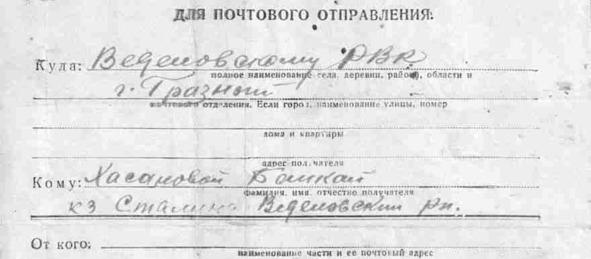 ДЛЯ ПОЧТОВОГО ОТПРАВЛЕНИЯ:
Куда: Веденовскому РВК
полное наименование села, деревни, района, области и
г. Грозный
почтового отделения. Если город, наименование улицы, номер
дома и квартиры
адрес получателя
Кому: Хасановой
фамилия, имя, отчество получателя
кз Сталина Веденовский рн.
От кого:
наименование части и ее почтовый адрес